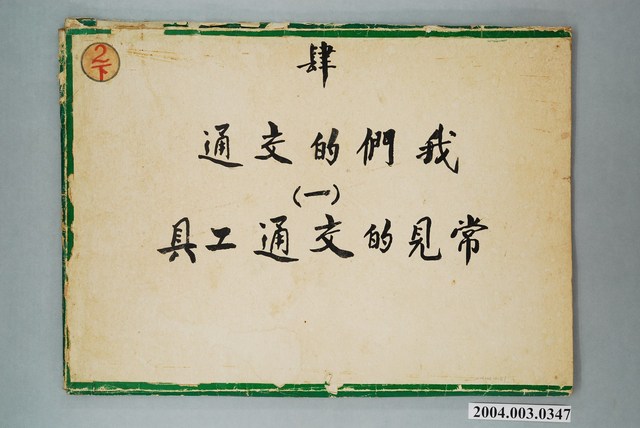 2下
肆
我們的交通
(一)
常見的交通工具
2004.003.0347